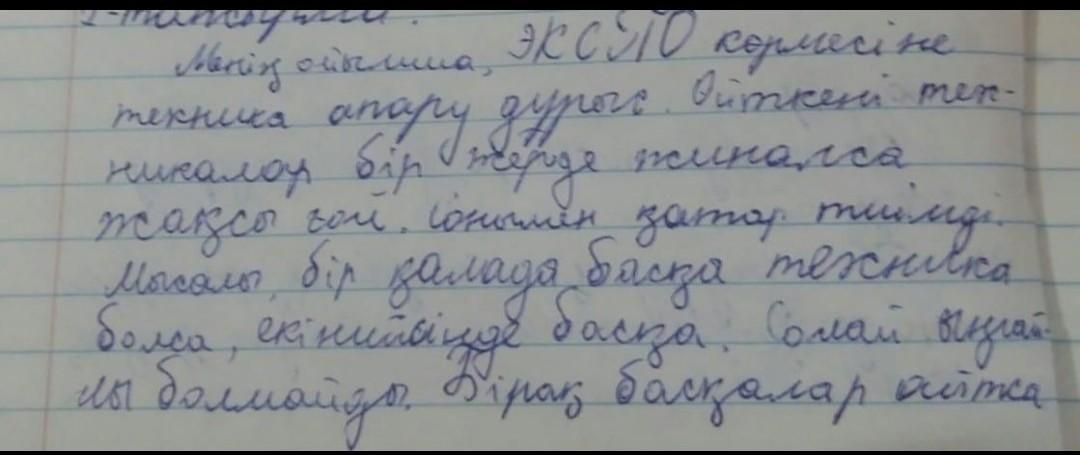 1-тапсырма.
Менің ойымша, ЭКСПО көрмесіне
техника апару дұрыс. Өйткені тех-
никалар бір жерде жиналса
жақсы ғой. Сонымен қатар тиімді.
Мысалы, бір қалада басқа техника
болса, екіншісінде басқа. Солай ыңғай-
лы болмайды. Бірақ басқалар айтса